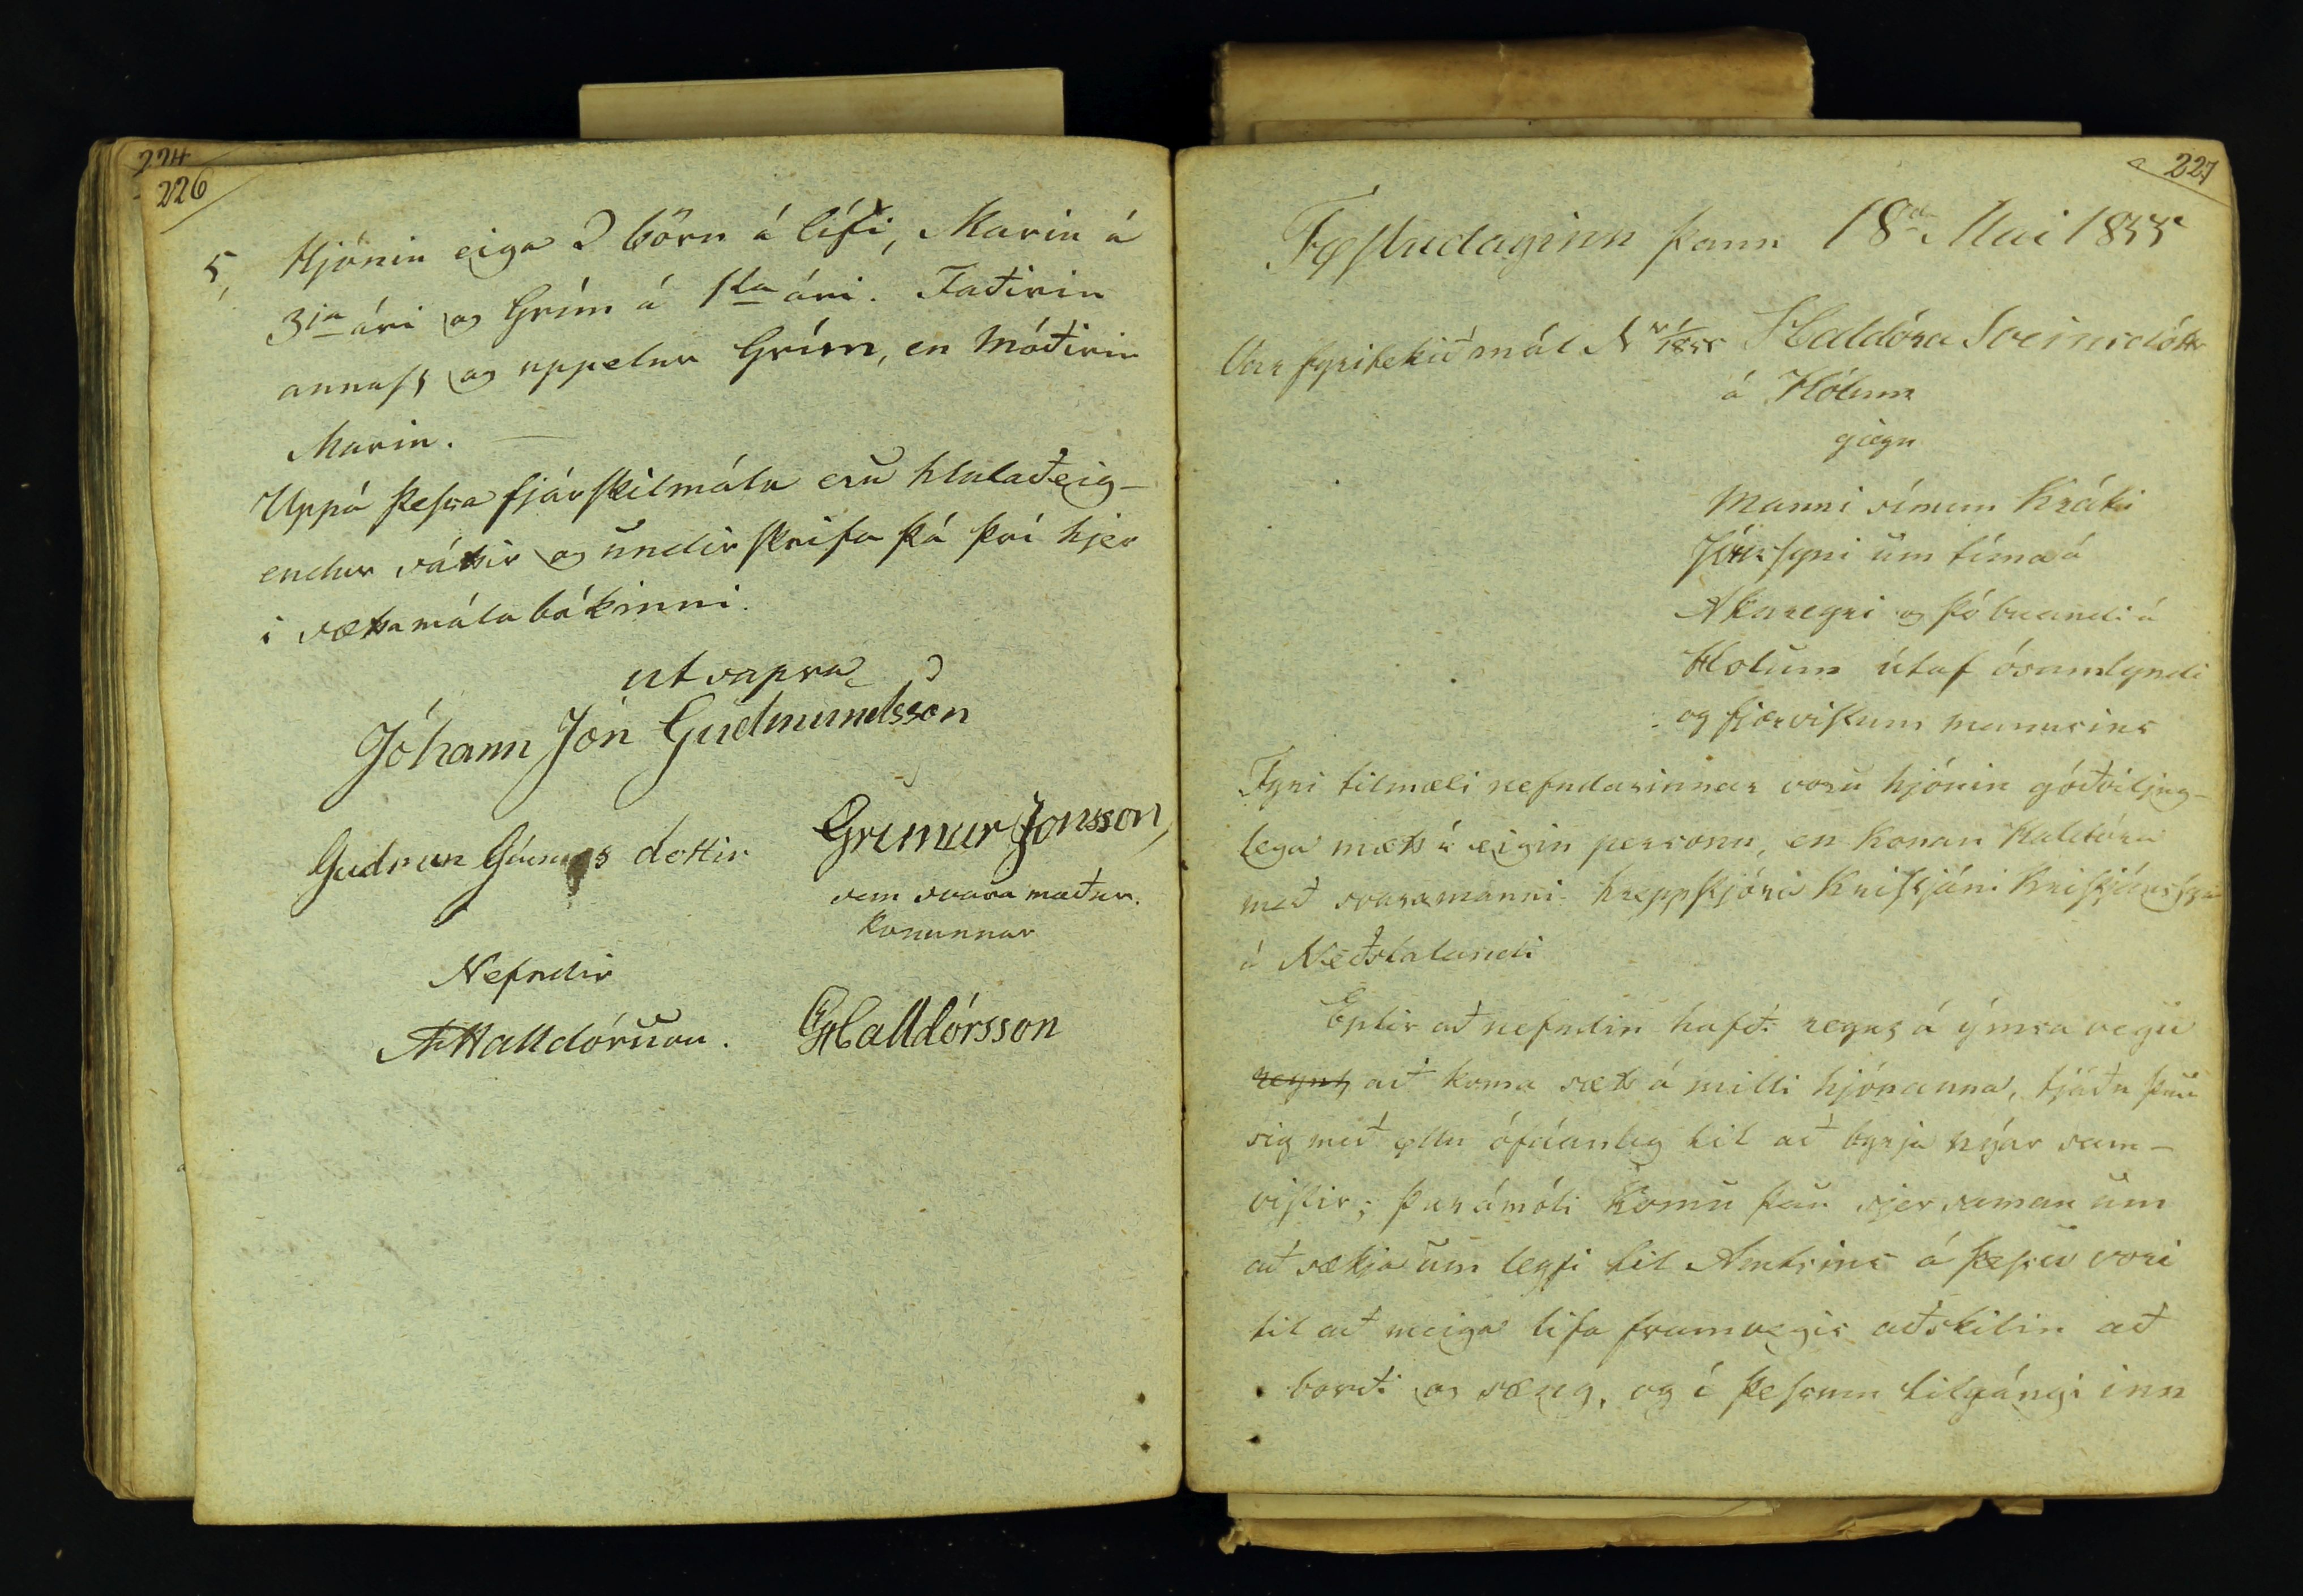 224
226
5, Hjónin eiga 2 börn á lífi, Marin á
3ja ári og Grím á 1ta ári. Faðirin
annast og uppelur Grím, en Móðirin
Marin.
Uppá þessa fjárskilmála eru hlutaðeig-
endur sáttir og undirskrifa þá því hjer
i sættamálabókinni.
ut supra
Jóhann Jón Gudmundsson
Gudrun Gríms dottir
Grimur Jonsson,
sem svaramaður
konunnar
Nefndin
A Halldórsson.
GHalldórsson
227
Föstudaginn þann 18da Mai 1855
Var fyritekið mál N 1/1855 Haldóra Sveinsdóttr
á Hólum
giegn
Manni sínum Kráki
Jónssyni um tíma á
Akureyri og þó buandi á
Holum útaf ósamlyndi
og fjærvistum mannsins
Fyri tilmæli nefndarinnar voru hjónin góðviljug-
lega mætt í eigin personu, en konan Haldóra
með svaramanni hreppstjóra Kristjáni Kristjánssyni
á Neðstalandi
Eptir að nefndin hafði reynt á ýmsa vegu
reynt að koma sætt á milli hjónanna, tjáðu þau
sig með öllu ófáanleg til að byrja nýar sam-
vistir; þarámóti komu þau sjer saman um
að sækja um leyfi til Amtsins á þessu vori
til að meiga lifa framvegis aðskilin að
borði og sæng, og í þessum tilgángi inn